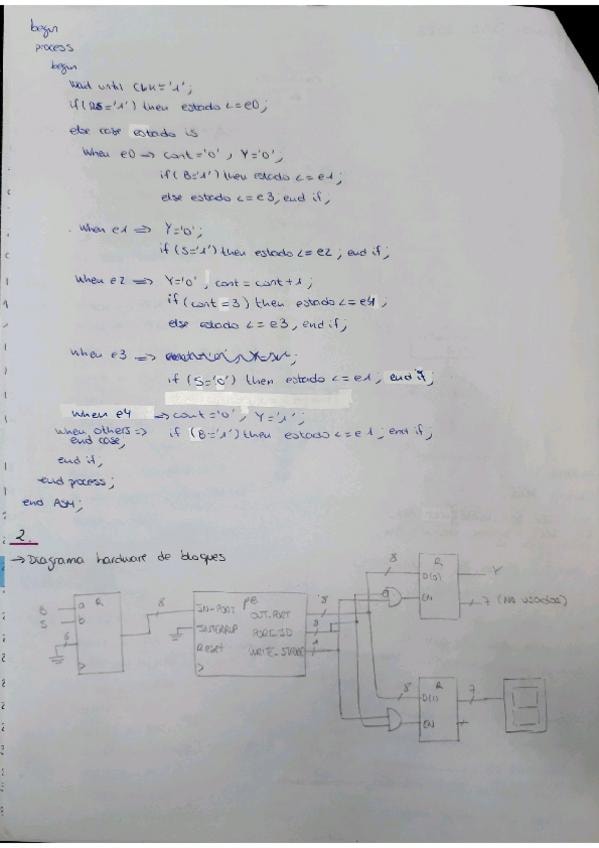 begin
process
begin
Wait until CLK='1';
if(RS='1') then estado <= e0;
else case estado is
When e0 => cont='0', Y='0';
if(B='1') then estado <= e1;
else estado <= e3, end if;
When e1 => Y='0';
if(S='1') then estado <= e2; end if;
When e2 => Y='0', cont = cont+1;
if(cont = 3) then estado <= e4;
else estado <= e3, end if;
When e3 =>
if (S='0') then estado <= e1, end if;
When e4 => cont='0', Y='1';
when others => if (B='1') then estado <= e1; end if;
end case;
end if;
end process;
end ASM;
2.
→ Diagrama hardware de bloques
B a R 8 IN-PORT PB OUT-PORT 8
S b INTERRUP PORT-ID 8
6 RESET WRITE_STROBE
8 R D(0) Y
EN 7 (No usados)
8 R D(1) 7
EN